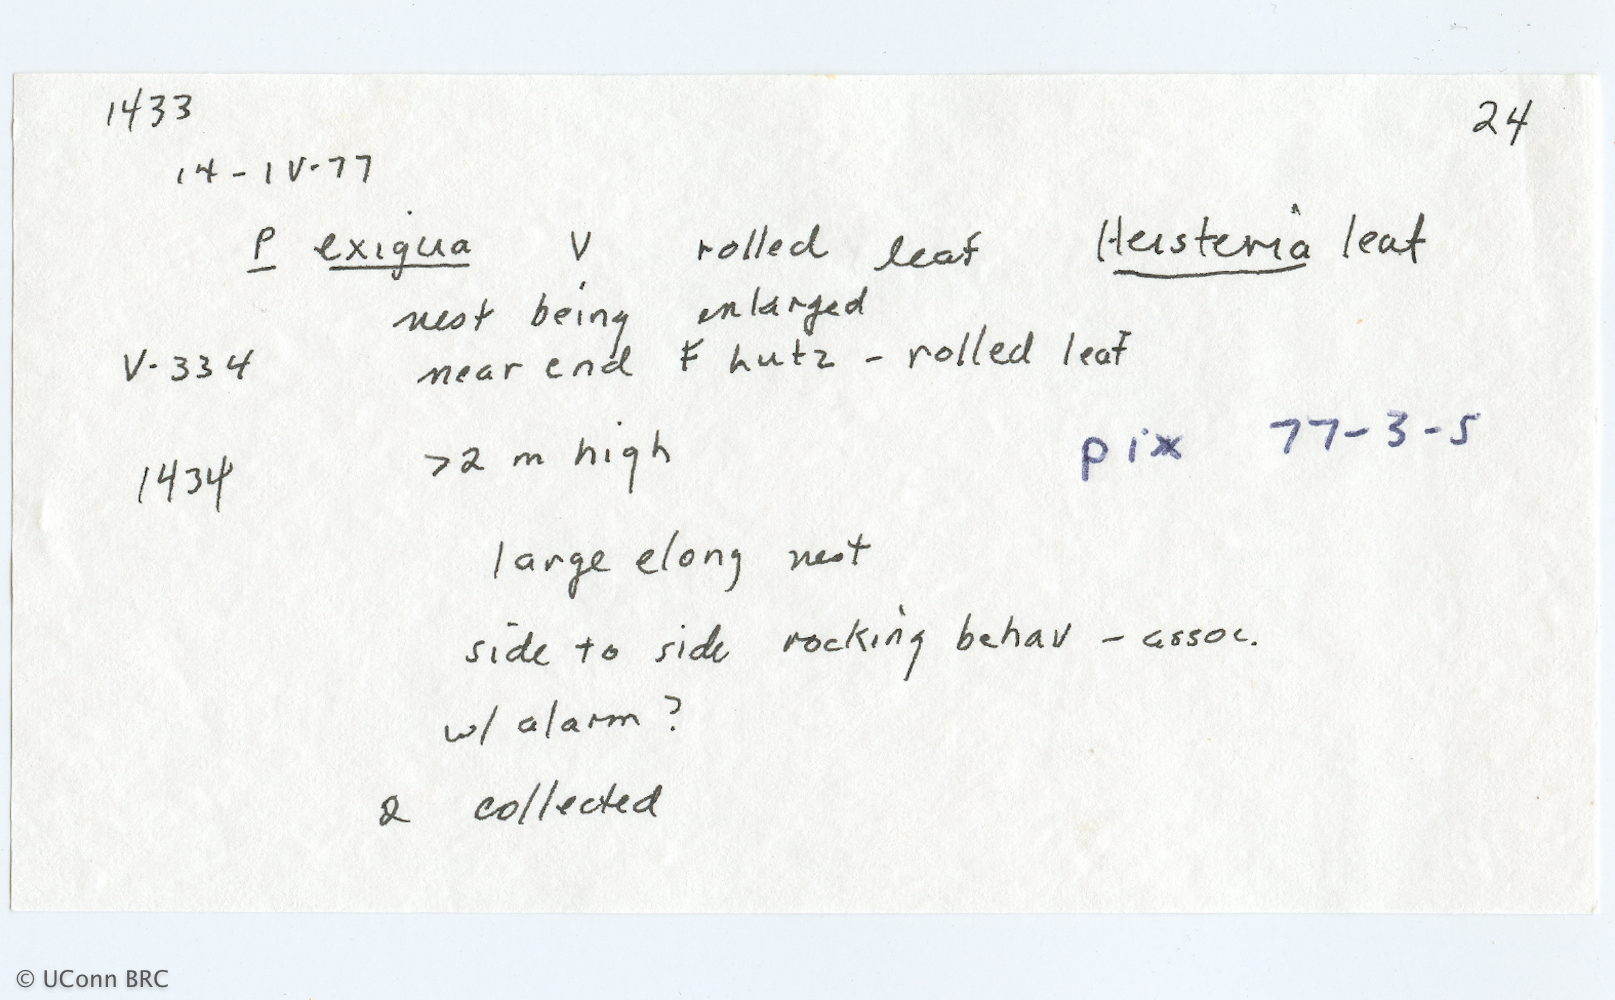 1433
24
14-IV-77
P exigua V rolled leaf Heisteria leaf
nest being enlarged
V-334 near end F hutz - rolled leaf
1434 >2 m high pix 77-3-5
large elong nest
side to side rocking behav - assoc.
w/ alarm?
2 collected
© UConn BRC